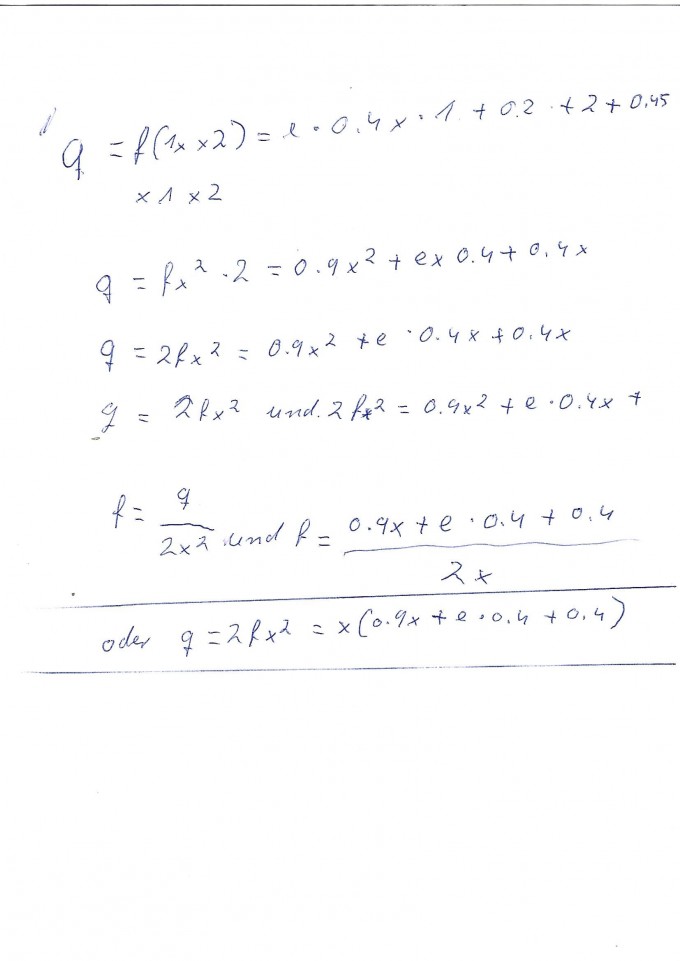 q = f(1x x2) = e · 0.4x · 1 + 0.2 · + 2 + 0.45
x 1 x 2
q = fx² · 2 = 0.9x² + ex 0.4 + 0.4x
q = 2fx² = 0.9x² + e · 0.4x + 0.4x
q = 2fx² und. 2fx² = 0.9x² + e · 0.4x +
f = q / 2x² und f = 0.9x + e · 0.4 + 0.4 / 2x
oder q = 2fx² = x(0.9x + e · 0.4 + 0.4)